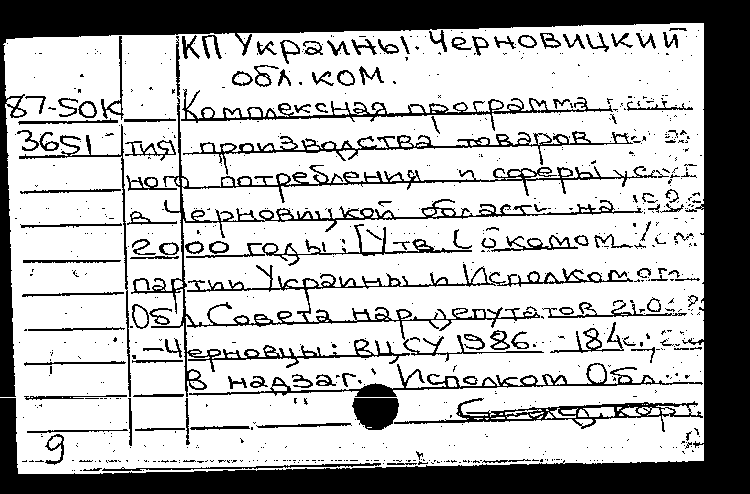 КП Украины. Черновицкий
обл. ком.
87-50К Комплексная программа
3651 тия производства товаров
ного потребления и сферы услуг
в Черновицкой области на
2000 годы: [Утв.
партии Украины и Исполкомом
Обл. Совета нар. депутатов
.-Черновцы: ВЦСУ, 1986. - 184с.;
В надзаг.: Исполком Обл...
карт.
9